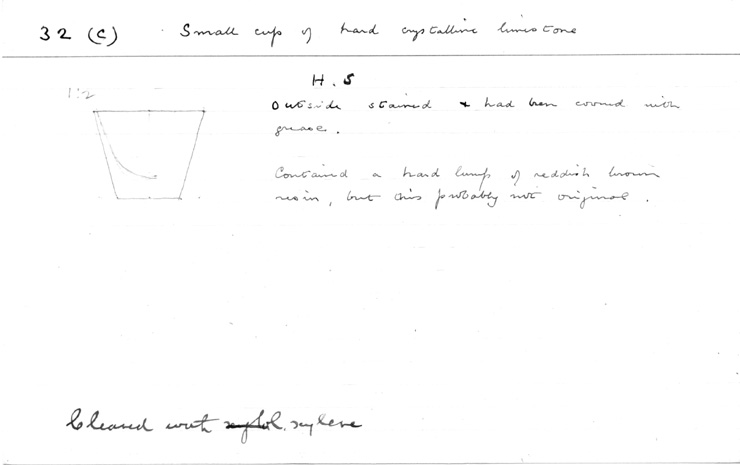 32 (c) Small cup of hard crystalline limestone
1:2
H. 5
Outside stained & had been covered with
grease.
Contained a hard lump of reddish brown
resin, but this probably not original.
Cleaned with xylol. xylene